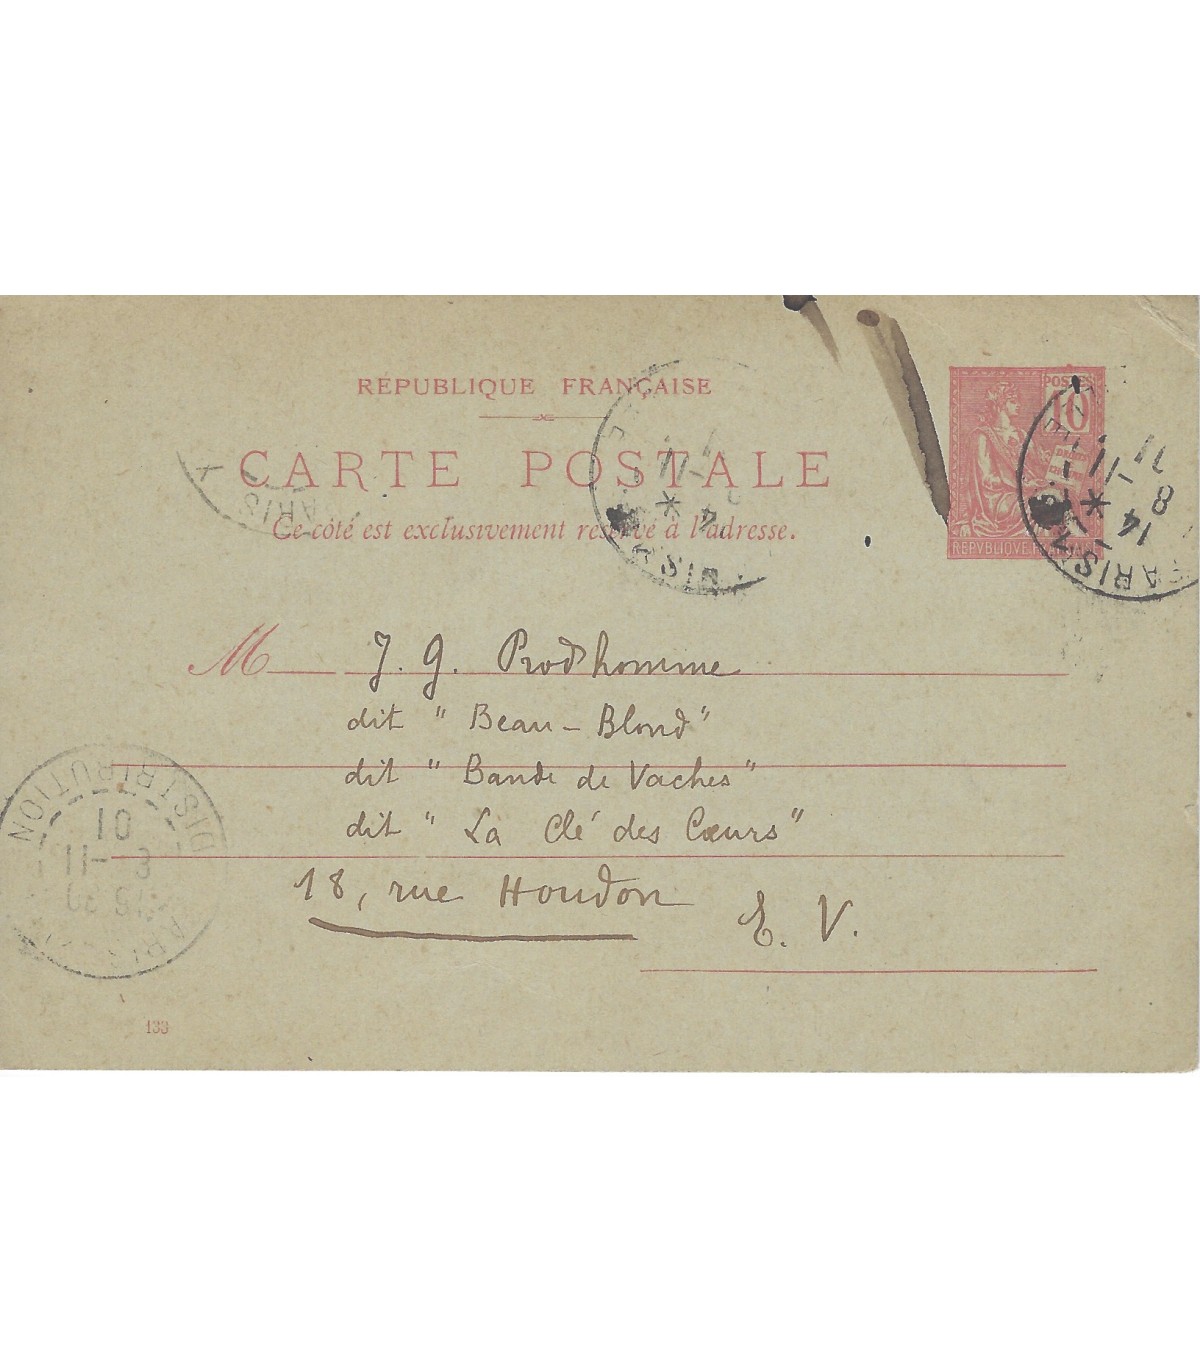 RÉPUBLIQUE FRANÇAISE
CARTE POSTALE
Ce côté est exclusivement réservé à l'adresse.
POSTES
10
RÉPVBLIQVE FRANÇAISE
M J. G. Prodhomme
dit " Beau-Blond "
dit " Bande de Vaches "
dit " La Clé des Cœurs "
18, rue Houdon
E. V.
DISTRIBUTION
PARIS
01
133